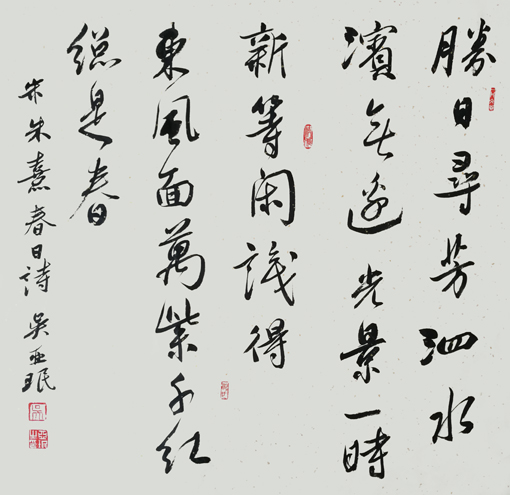 勝日尋芳泗水
濱無邊光景一時
新等閑識得
東風面萬紫千紅
總是春
宋朱熹春日詩 吴亚珉